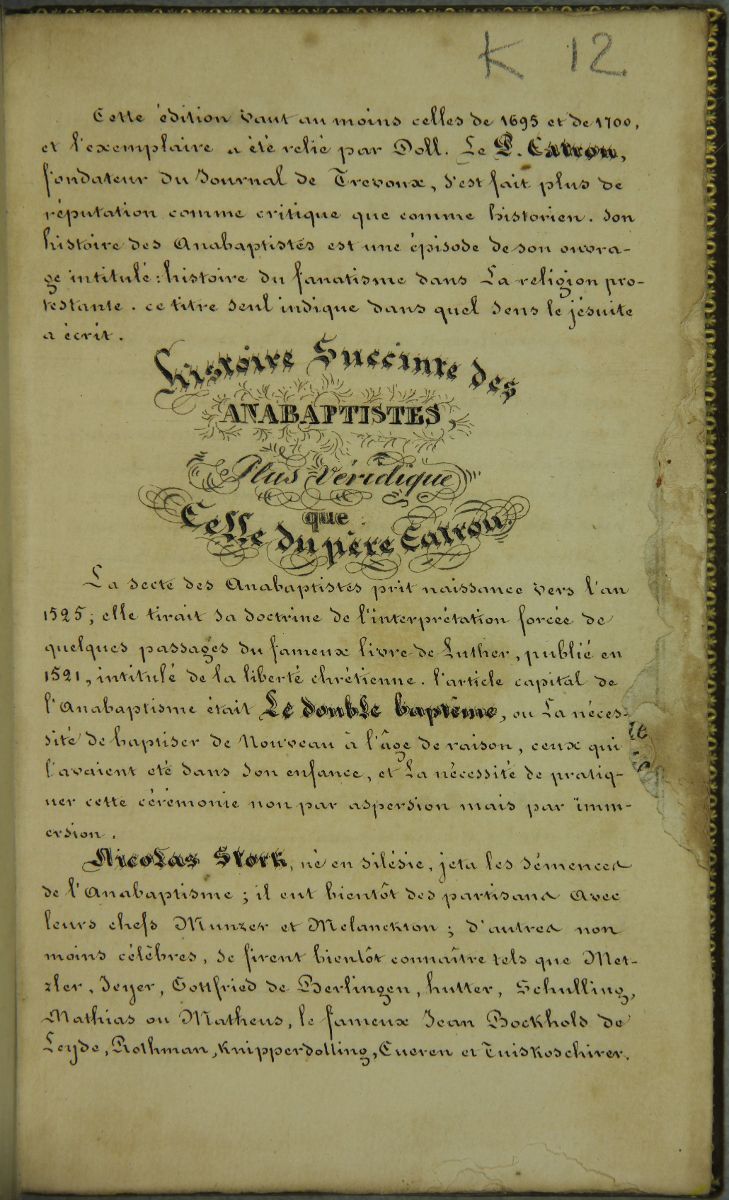 K 12
Cette édition vaut au moins celles de 1695 et de 1700,
et l'exemplaire a été relié par Doll. Le P. Catrou,
fondateur du Journal de Trevoux, s'est fait plus de
réputation comme critique que comme historien. son
histoire des Anabaptistes est une épisode de son ouvra-
ge intitulé: histoire du fanatisme dans La religion pro-
testante. ce titre seul indique dans quel sens le jésuite
a écrit.
Histoire Succinte des
ANABAPTISTES,
Plus Véridique
que
Celle du père Catrou.
La secte des Anabaptistes prit naissance vers l'an
1525; elle tirait sa doctrine de l'interprétation forcée de
quelques passages du fameux livre de Luther, publié en
1521, intitulé de la liberté chrétienne. l'article capital de
l'Anabaptisme était Le double baptême, ou La néces-
sité de baptiser de Nouveau à l'âge de raison, ceux qui
l'avaient eté dans son enfance, et La nécessité de pratiq-
uer cette cérémonie non par aspersion mais par imm-
ersion.
Nicolas Stork, né en silésie, jeta les sémences
de l'Anabaptisme; il eut bientôt des partisans avec
leurs chefs Munzer et Melanckton; d'autres non
moins célèbres, se firent bientôt connaître tels que Met-
zler, Jeyer, Gottfried de Berlingen, hutter, Schulling,
Mathias ou Matheus, le fameux Jean Bockhold de
Leyde, Rothman, Knipperdolling, Cueren et Tuiskoschirer.